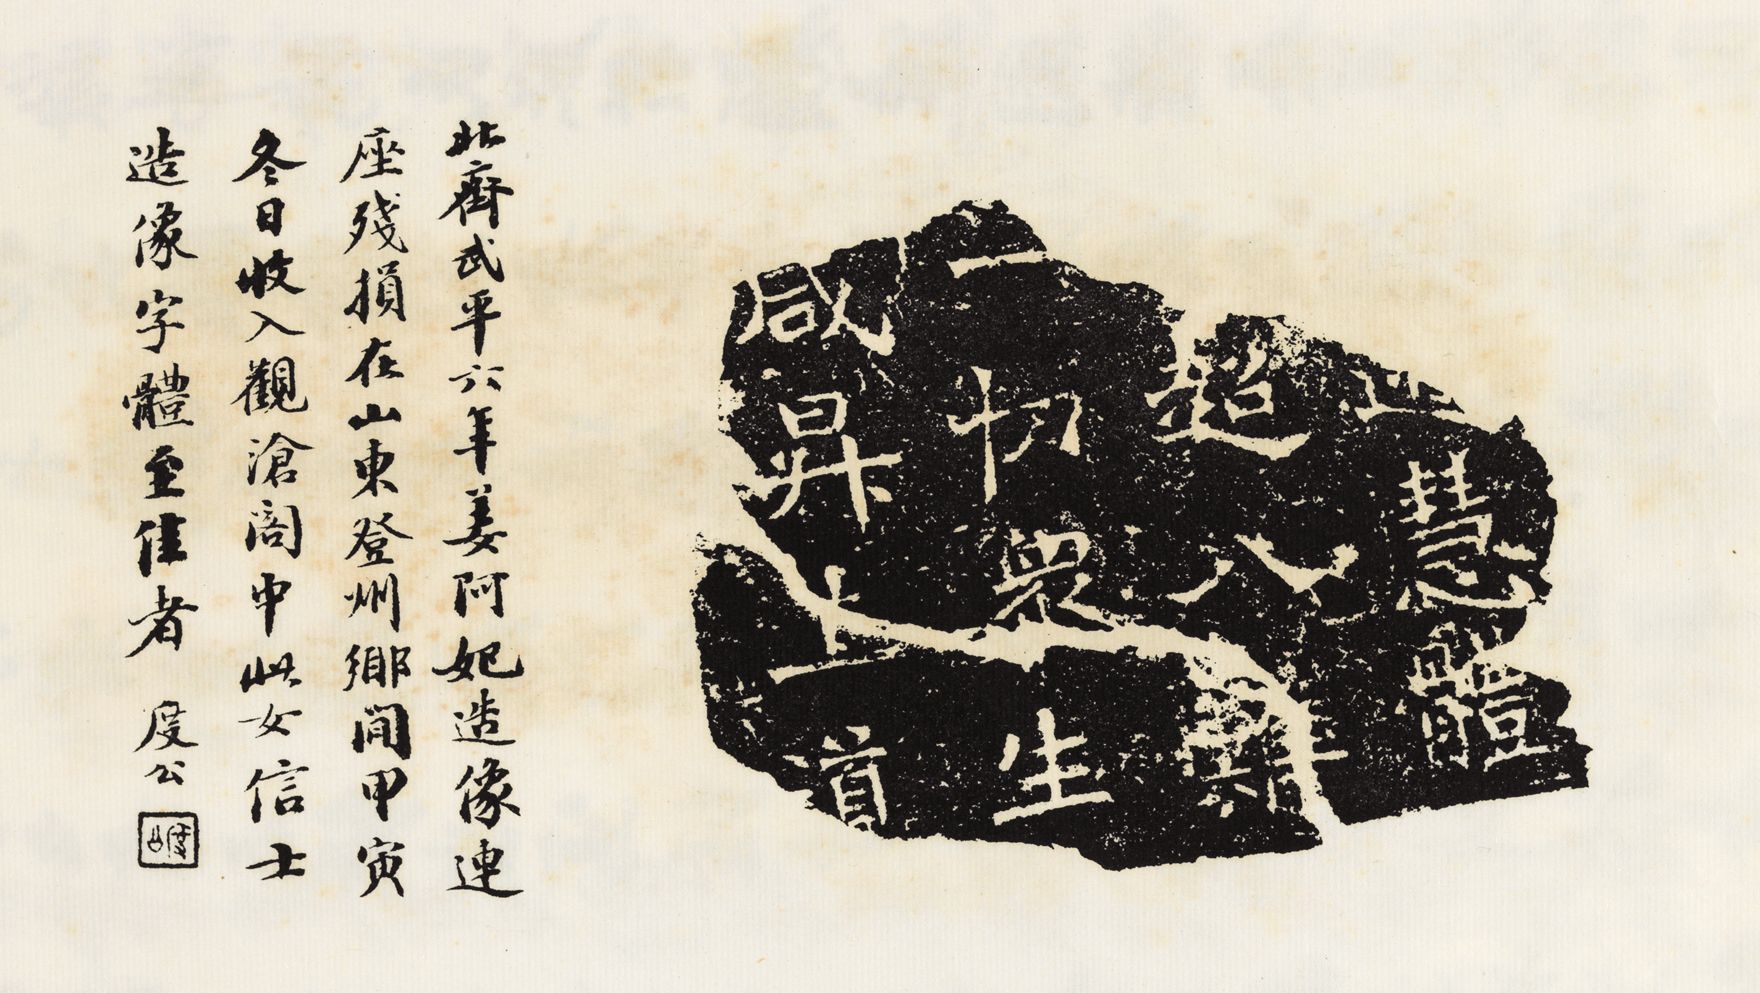 慧體
超八難
一切眾生
咸昇上道
北齊武平六年姜阿妃造像連
座殘損在山東登州鄉間甲寅
冬日收入觀滄閣中此女信士
造像字體至佳者 度公